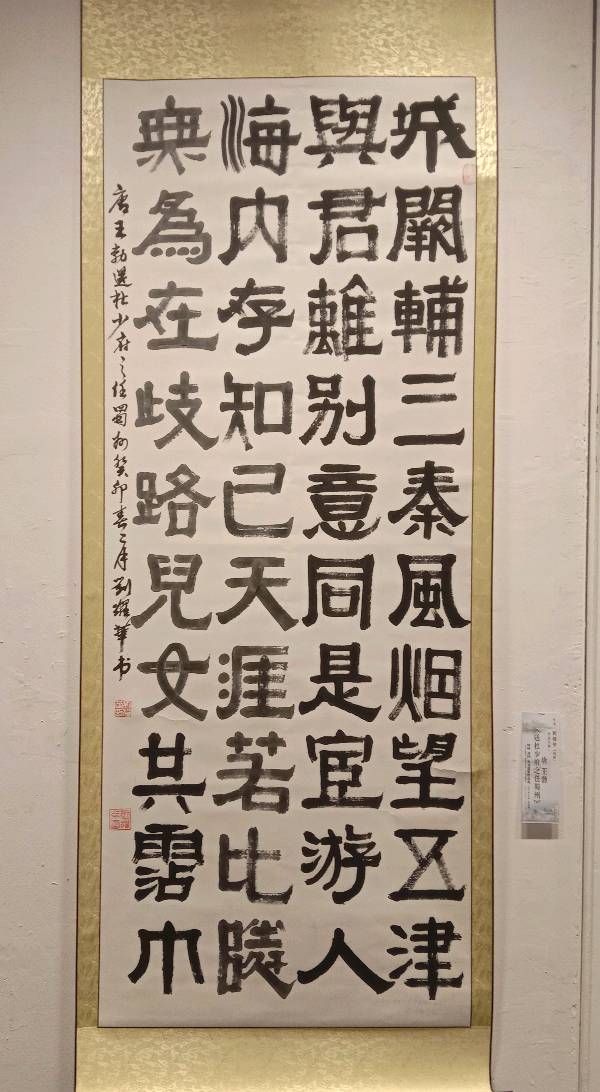 城闕輔三秦風烟望五津
與君離别意同是宦游人
海内存知己天涯若比隣
無為在歧路兒女共霑巾
唐王勃送杜少府之任蜀州癸卯春二月劉耀華书
唐 王勃
《送杜少府之任蜀州》